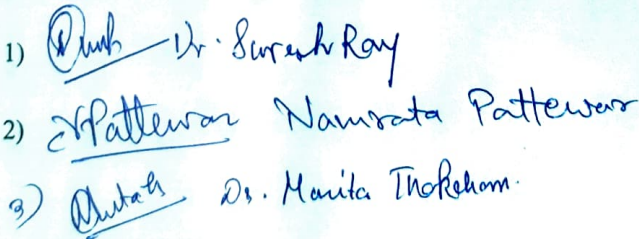 1) Dr. Suresh Ray
2) NPattewar Namrata Pattewar
3) Dr. Manita Thokchom.